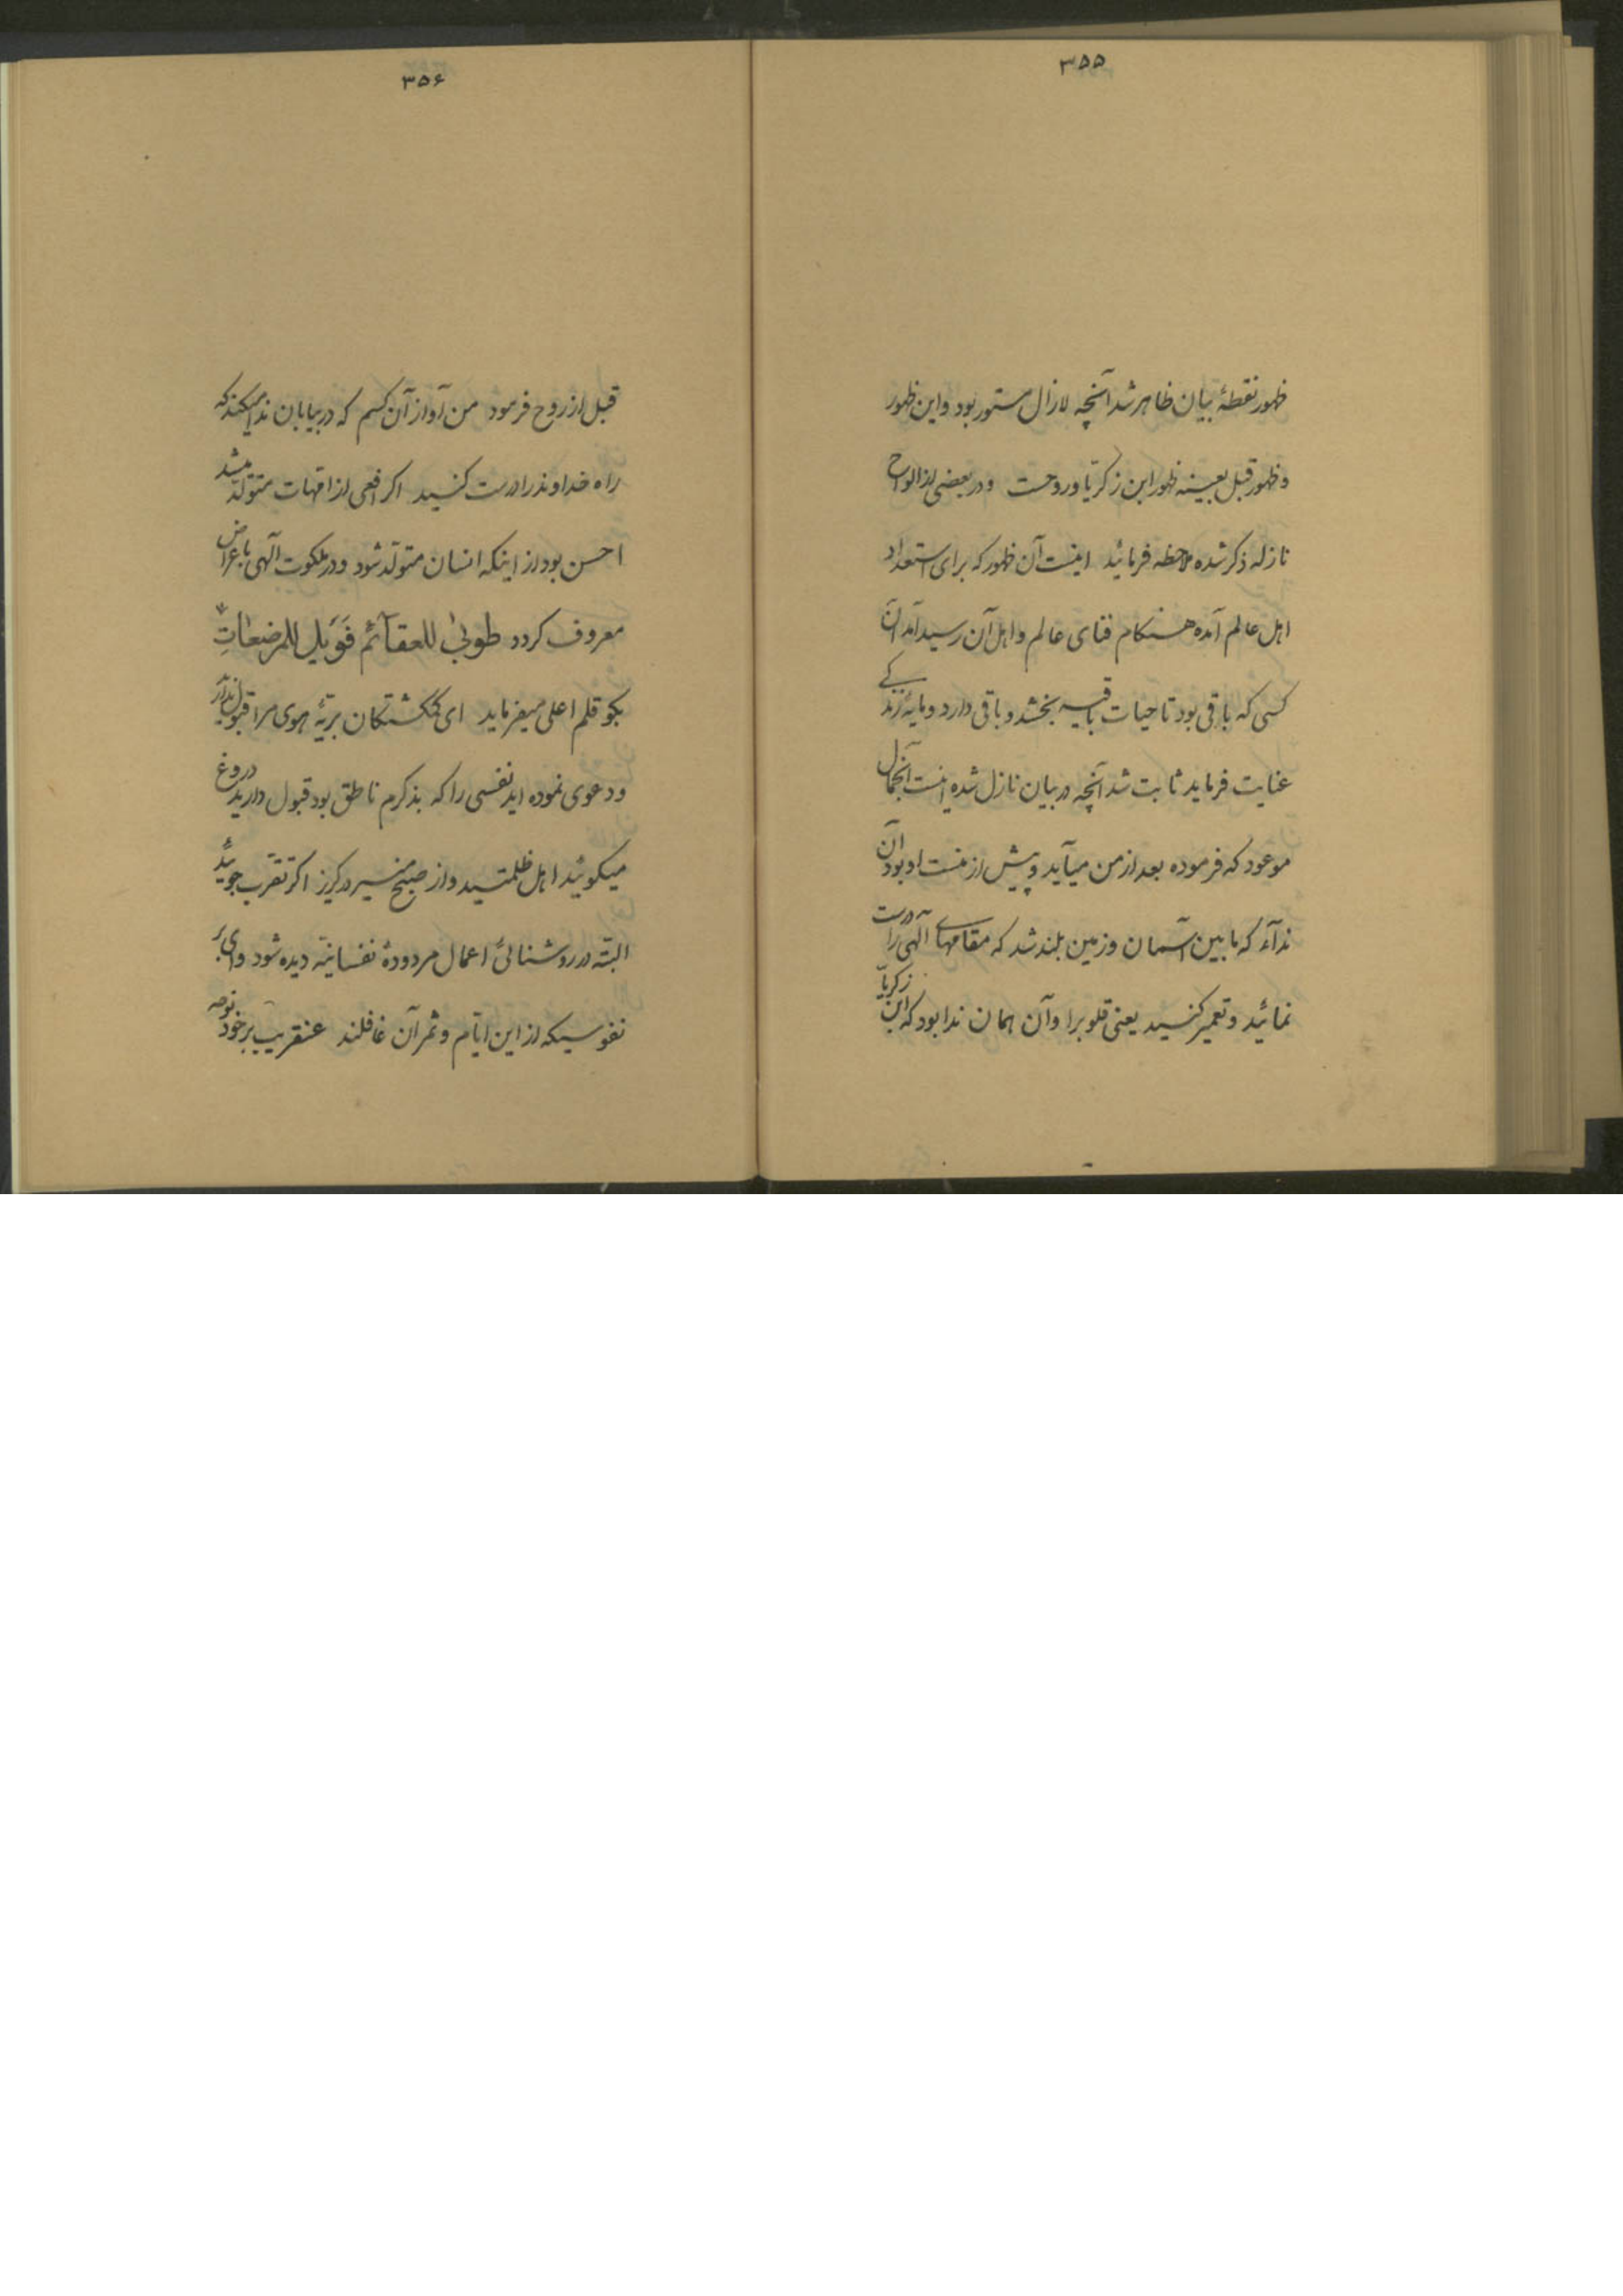 ۳۵۵
ظهور نقطهٔ بیان ظاهر شد آنچه لازال مستور بود و این ظهور
و ظهور قبل بعینه ظهور ابن زکریّا و روحست و در بعضی از الواح
نازله ذکر شده ملاحظه فرمائید اینست آن ظهور که برای استعداد
اهل عالم آمده هنگام فنای عالم و اهل آن رسید آمد آن
کسی که باقی بود تا حیات باقیه بخشد و باقی دارد و مایهٔ زندگی
عنایت فرماید ثابت شد آنچه در بیان نازل شده اینست آنجمال
موعود که فرموده بعد از من میآید و پیش از منست او بود آن
ندآء که ما بین آسمان و زمین بلند شد که مقامهای آلهی را درست
نمائید و تعمیر کنید یعنی قلوبرا و آن همان ندا بود که ابن زکریّا
۳۵۶
قبل از روح فرمود من آواز آن کسم که در بیابان ندا میکند که
راه خداوند را درست کنید اگر افعی از امّهات متولّد میشد
احسن بود از اینکه انسان متولّد شود و در ملکوت آلهی باعراض
معروف گردد طوبیٰ للعقآئم فَوَیل للمرضعاتِ
بگو قلم اعلی میفرماید ای گمگشتگان بریّهٔ هوی مرا قبول ندارید
و دعوی نموده اید نفسی را که بذکرم ناطق بود قبول دارید دروغ
میگوئید اهل ظلمتید و از صبح منیر در گریز اگر تقرّب جوئید
البتّه در روشنائی اعمال مردودهٔ نفسانیّه دیده شود وای بر
نفوسیکه از این ایّام و ثمر آن غافلند عنقریب بر خود نوحه